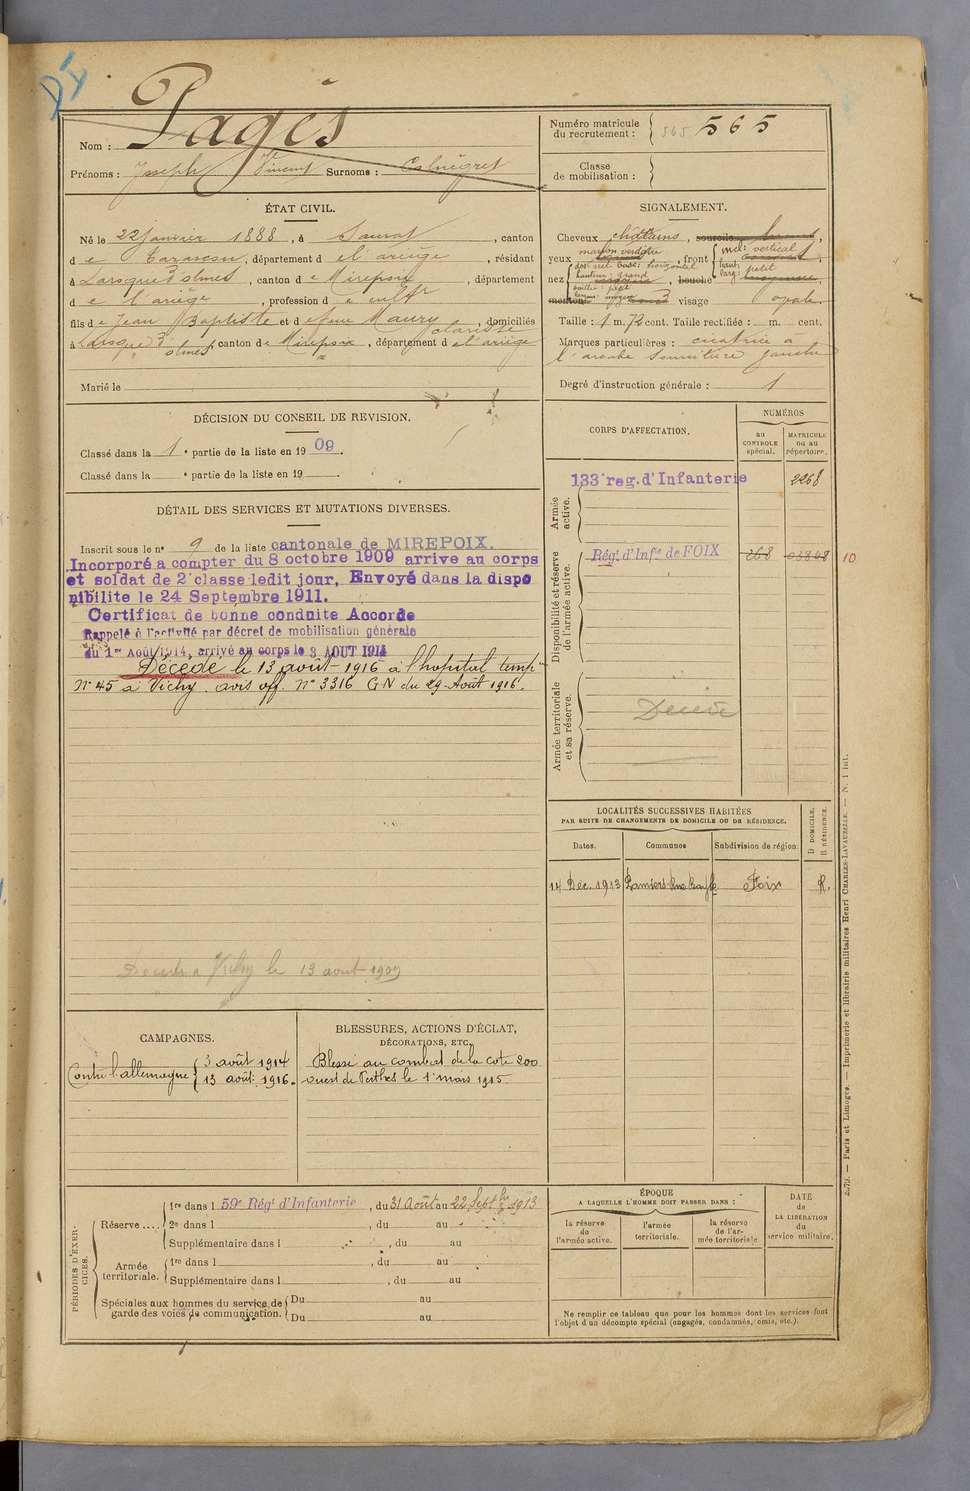 Pagès
Nom :
Prénoms : Joseph Vincent Surnoms :
Numéro matricule du recrutement : 565 565
Classe de mobilisation :
ÉTAT CIVIL.
Né le 22 Janvier 1888, à Saurat, canton
de Tarascon, département de l'ariège, résidant
à, canton de Mirepoix, département
de l'ariège, profession de cultr
fils de Jean Baptiste et de feue Maury Clarisse, domiciliés
à, canton de Mirepoix, département de l'ariège
Marié le
SIGNALEMENT.
Cheveux châtains, sourcils
yeux marron verdâtre, front incl: vertical
haut:
larg: petit
nez dos: rect. base: horizontal
hauteur: grand
saillie: petit
largeur: moyen
bouche
menton visage ovale.
Taille : 1 m. 72 cent. Taille rectifiée : m. cent.
Marques particulières : cicatrice à
l'arcade sourcilière gauche
Degré d'instruction générale : 1
DÉCISION DU CONSEIL DE REVISION.
Classé dans la 1e partie de la liste en 1909.
Classé dans la e partie de la liste en 19 .
DÉTAIL DES SERVICES ET MUTATIONS DIVERSES.
Inscrit sous le n° 9 de la liste cantonale de MIREPOIX.
Incorporé a compter du 8 octobre 1909 arrive au corps
et soldat de 2e classe ledit jour, Envoyé dans la dispo
nibilite le 24 Septembre 1911.
Certificat de bonne conduite Accorde
Rappelé à l'activité par décret de mobilisation générale
du 1er Août 1914, arrivé au corps le 3 AOUT 1914
Décédé le 13 août 1916 à l'hopital temp
N° 45 à Vichy. avis off. N° 3316 GN du 29 Août 1916.
à Vichy le 13 aout
CORPS D'AFFECTATION.
NUMÉROS
au CONTROLE spécial.
MATRICULE ou au répertoire.
Armée active.
133e reg. d'Infanterie 2268
Disponibilité et réserve de l'armée active.
Régt d'Infie de FOIX 268 10
Armée territoriale et sa réserve.
Décédé
LOCALITÉS SUCCESSIVES HABITÉES
PAR SUITE DE CHANGEMENTS DE DOMICILE OU DE RÉSIDENCE.
Dates. Communes Subdivision de région. D DOMICILE. R RÉSIDENCE.
14 Déc. 1913 Pamiers Foix R.
CAMPAGNES.
Contre l'allemagne 3 août 1914
13 août 1916.
BLESSURES, ACTIONS D'ÉCLAT,
DÉCORATIONS, ETC.
Blessé au combat de la cote 200
ouest de Perthes le 1er mars 1915
PÉRIODES D'EXERCICES.
Réserve....
1re dans l 59e Régt d'Infanterie, du 31 Août au 22 Septbre 1913
2e dans l , du au
Supplémentaire dans l , du au
Armée territoriale.
1re dans l , du au
Supplémentaire dans l , du au
Spéciales aux hommes du service de garde des voies de communication.
Du au
Du au
ÉPOQUE
A LAQUELLE L'HOMME DOIT PASSER DANS :
la réserve de l'armée active.
l'armée territoriale.
la réserve de l'armée territoriale
DATE de LA LIBÉRATION du service militaire.
Ne remplir ce tableau que pour les hommes dont les services font
l'objet d'un décompte spécial (engagés, condamnés, omis, etc.).
2279. — Paris et Limoges. — Imprimerie et librairie militaires Henri CHARLES-LAVAUZELLE. — N. 1 int.